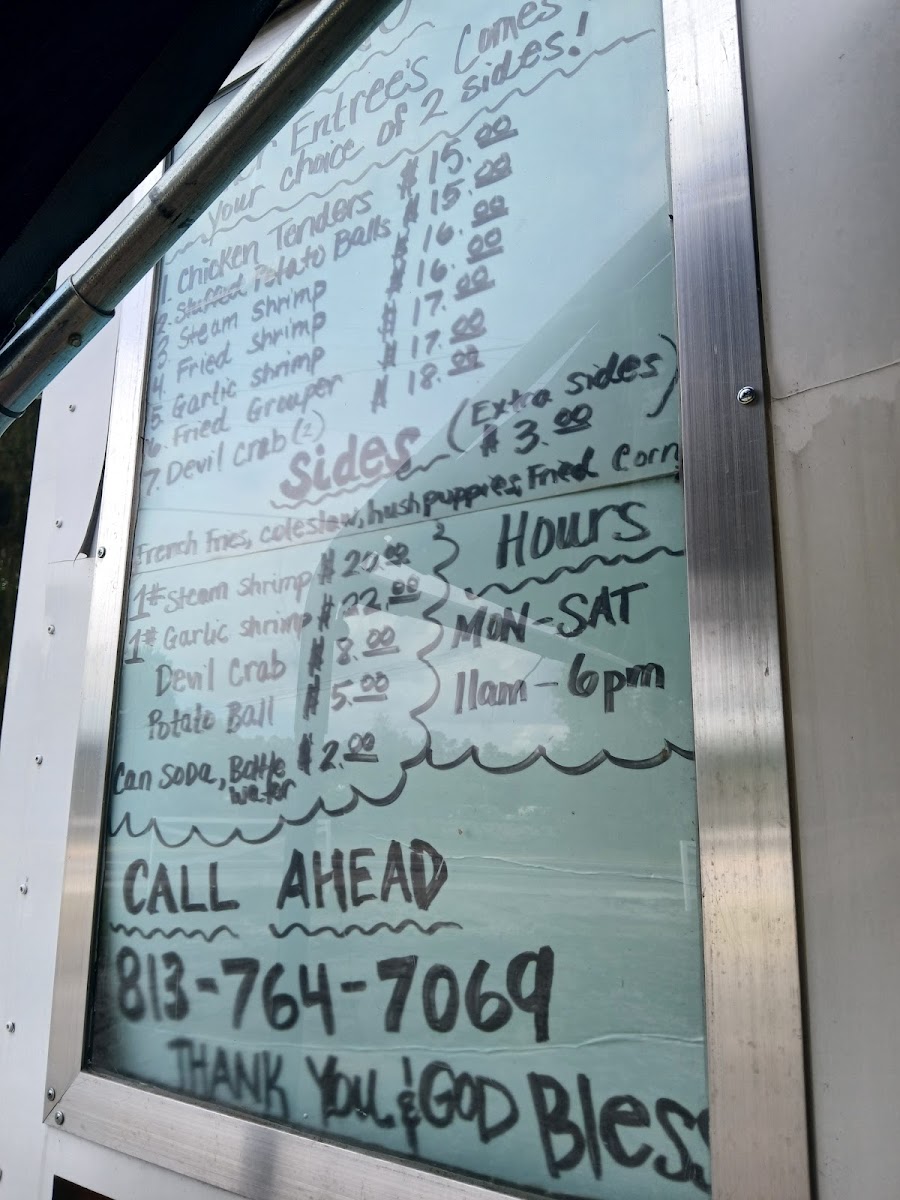 Entree's Comes
your choice of 2 sides!
1. Chicken Tenders $15.00
2. Stuffed Potato Balls $15.00
3. Steam shrimp $16.00
4. Fried shrimp $16.00
5. Garlic shrimp $17.00
6. Fried Grouper $17.00
7. Devil Crab (2) $18.00
Sides (Extra sides)
$3.00
French Fries, coleslaw, hushpuppies, Fried Corn
1# Steam shrimp $20.00
1# Garlic shrimp $22.00
Devil Crab $8.00
Potato Ball $5.00
Can Soda, Bottle $2.00
water
Hours
MON-SAT
11am-6pm
CALL AHEAD
813-764-7069
THANK You & GOD Bless